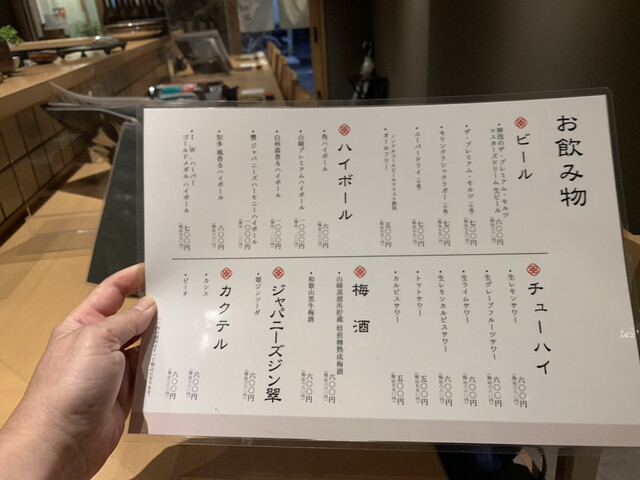 お飲み物
ビール
・神泡のザ・プレミアム・モルツ
マスターズドリーム 生ビール 六〇〇円
・ザ・プレミアム・モルツ 七〇〇円
・キリンクラシックラガー 七〇〇円
・スーパードライ 七〇〇円
ノンアルコールビールテイスト飲料
・オールフリー 五〇〇円
ハイボール
・角ハイボール 六〇〇円
・山崎プレミアムハイボール 一〇〇〇円
・白州森香るハイボール 一〇〇〇円
・響 ジャパニーズハーモニーハイボール 一〇〇〇円
・知多 風香るハイボール 八〇〇円
・I.W.ハーパー
ゴールドメダル ハイボール 七〇〇円
チューハイ
・生レモンサワー 六〇〇円
・生グレープフルーツサワー 六〇〇円
・生ライムサワー 六〇〇円
・生レモンカルピスサワー 六〇〇円
・トマトサワー 五〇〇円
・カルピスサワー 五〇〇円
梅酒
・山崎蒸溜所貯蔵 焙煎樽熟成梅酒 六〇〇円
・和歌山黒牛梅酒 六〇〇円
ジャパニーズジン翠
・翠ジンソーダ 六〇〇円
カクテル
・カシス 六〇〇円
・ピーチ 六〇〇円